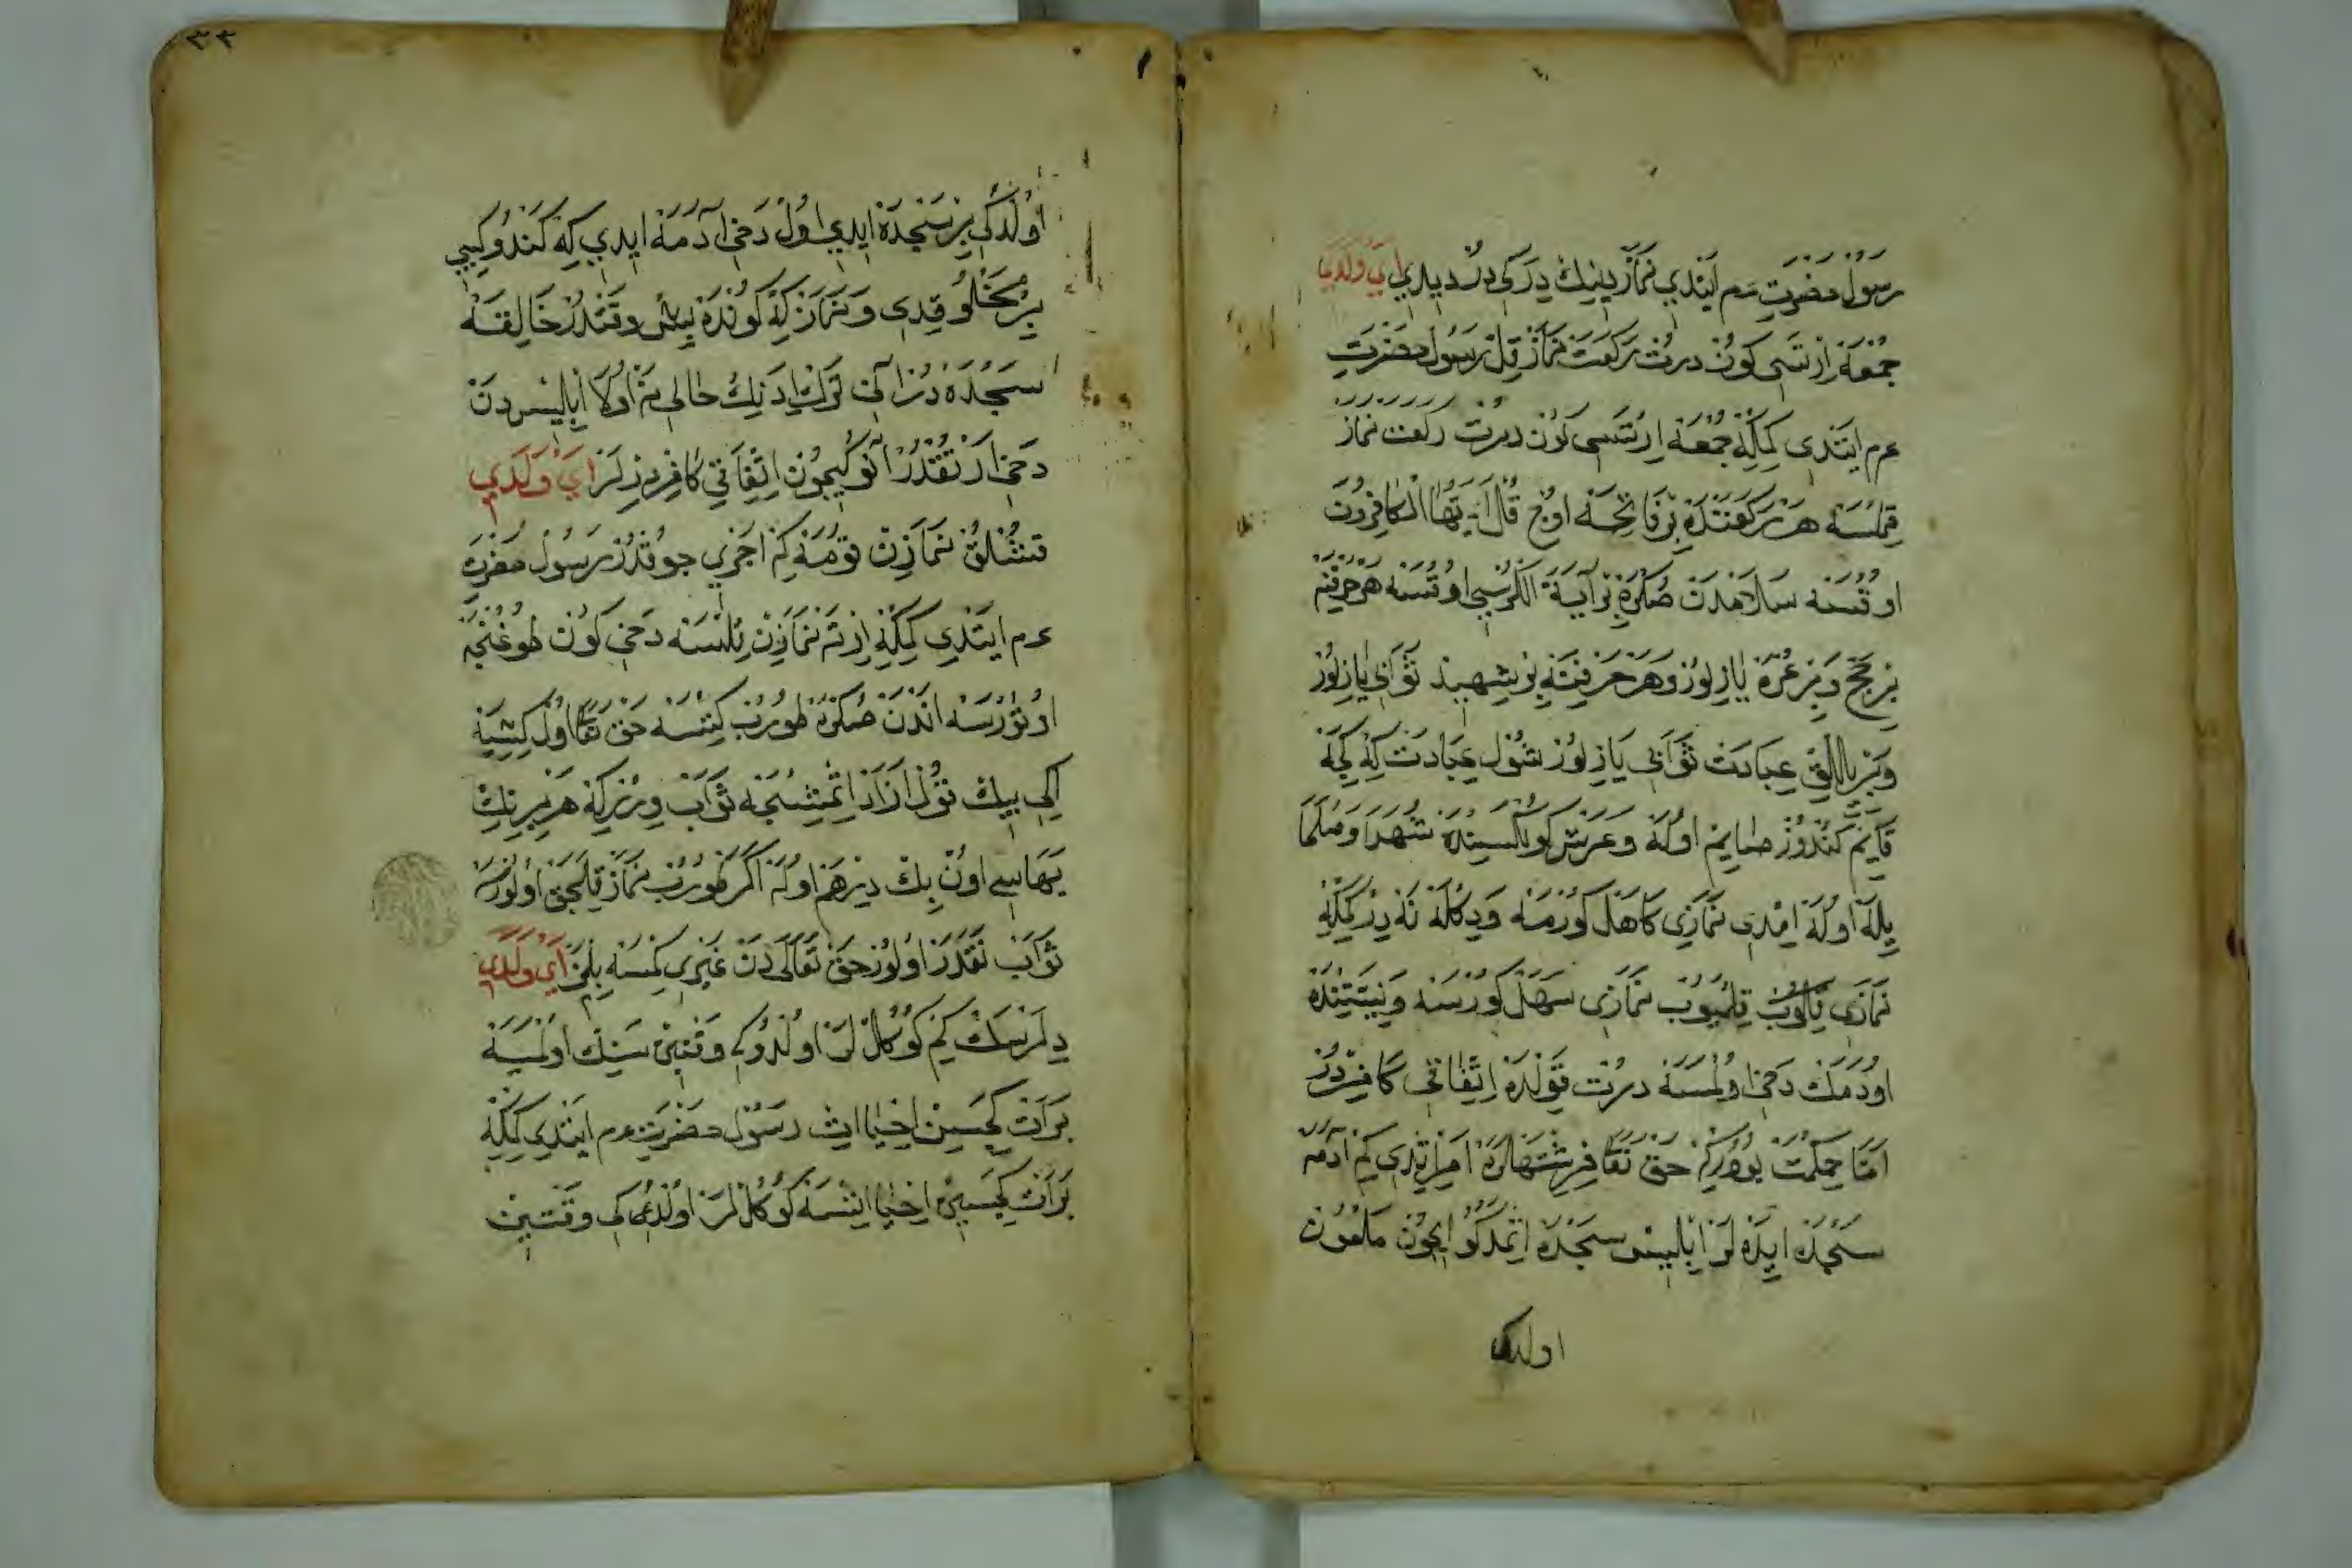 رسول حضرت عم ايتدي نماز دينك دركي در ديدي اي ولدي
جمعه ارتسى كون درت ركعت نماز قل رسول حضرت
عم ايتدى كمكه جمعه ارتسى كون درت ركعت نماز
قلسه هر ركعتنده بر فاتحه اوچ قل يا ايها الكافرون
اوقسه سلامدن صكره بر آية الكرسي اوقسه هر حرفنه
بر حج و بر عمره يازلور و هر حرفنه بر شهيد ثوابي يازلور
و بر يللق عبادت ثوابي يازلور شول عبادت كه كجه
قايم كندوز صايم اوله و عرش كولكسنده شهدا و صلحا
يله اوله امدى نمازي كاهل كورمه و دكله نه در كمكه
نمازى قلميوب نمازى سهل كورسه و نيتنده
اودمك دخى اولمسه درت قولده اتفاقى كافردر
اما حكمت بودركم حق تعا فرشتهلره امر اتدي كم آدمه
سجده ايده لر ابليس سجده اتمدكو ايچون ملعون
اولدى
٣٣
اولدي بر سجده ايدي اول دخى آدمه ايدي كه كندو كبي
بر مخلوقدى و نماز كه كونده بش وقتدر خالقه
سجده در انى ترك ادنك حالى نه اولا ابليس دن
دخى ارتقدر انوكيچون اتفاقي كافر درلر اي ولدي
قشلق نمازن قومه كم اجرى چوقدر رسول حضرت
عم ايتدى كمكه ارته نمازن قلسه دخى كون طوغنجه
اوتورسه اندن صكره طورب كتسه حق تعا اول كشيه
اكي بيك قول ازاد اتمشجه ثواب ويره كه هر برنك
بهاسى اون بك درهم اوله اكر طورب نماز قلجق اولورسه
ثواب نقدر اولور حق تعالى دن غيرى كمسه بلمز اي ولدي
دلرسك كم كوكللر اولدوكى وقتين سنك اولميه
برات كجسين احيا ات رسول حضرت عم ايتدى كمكه
برات كجسين احيا اتسه كوكللر اولدوكى وقتين